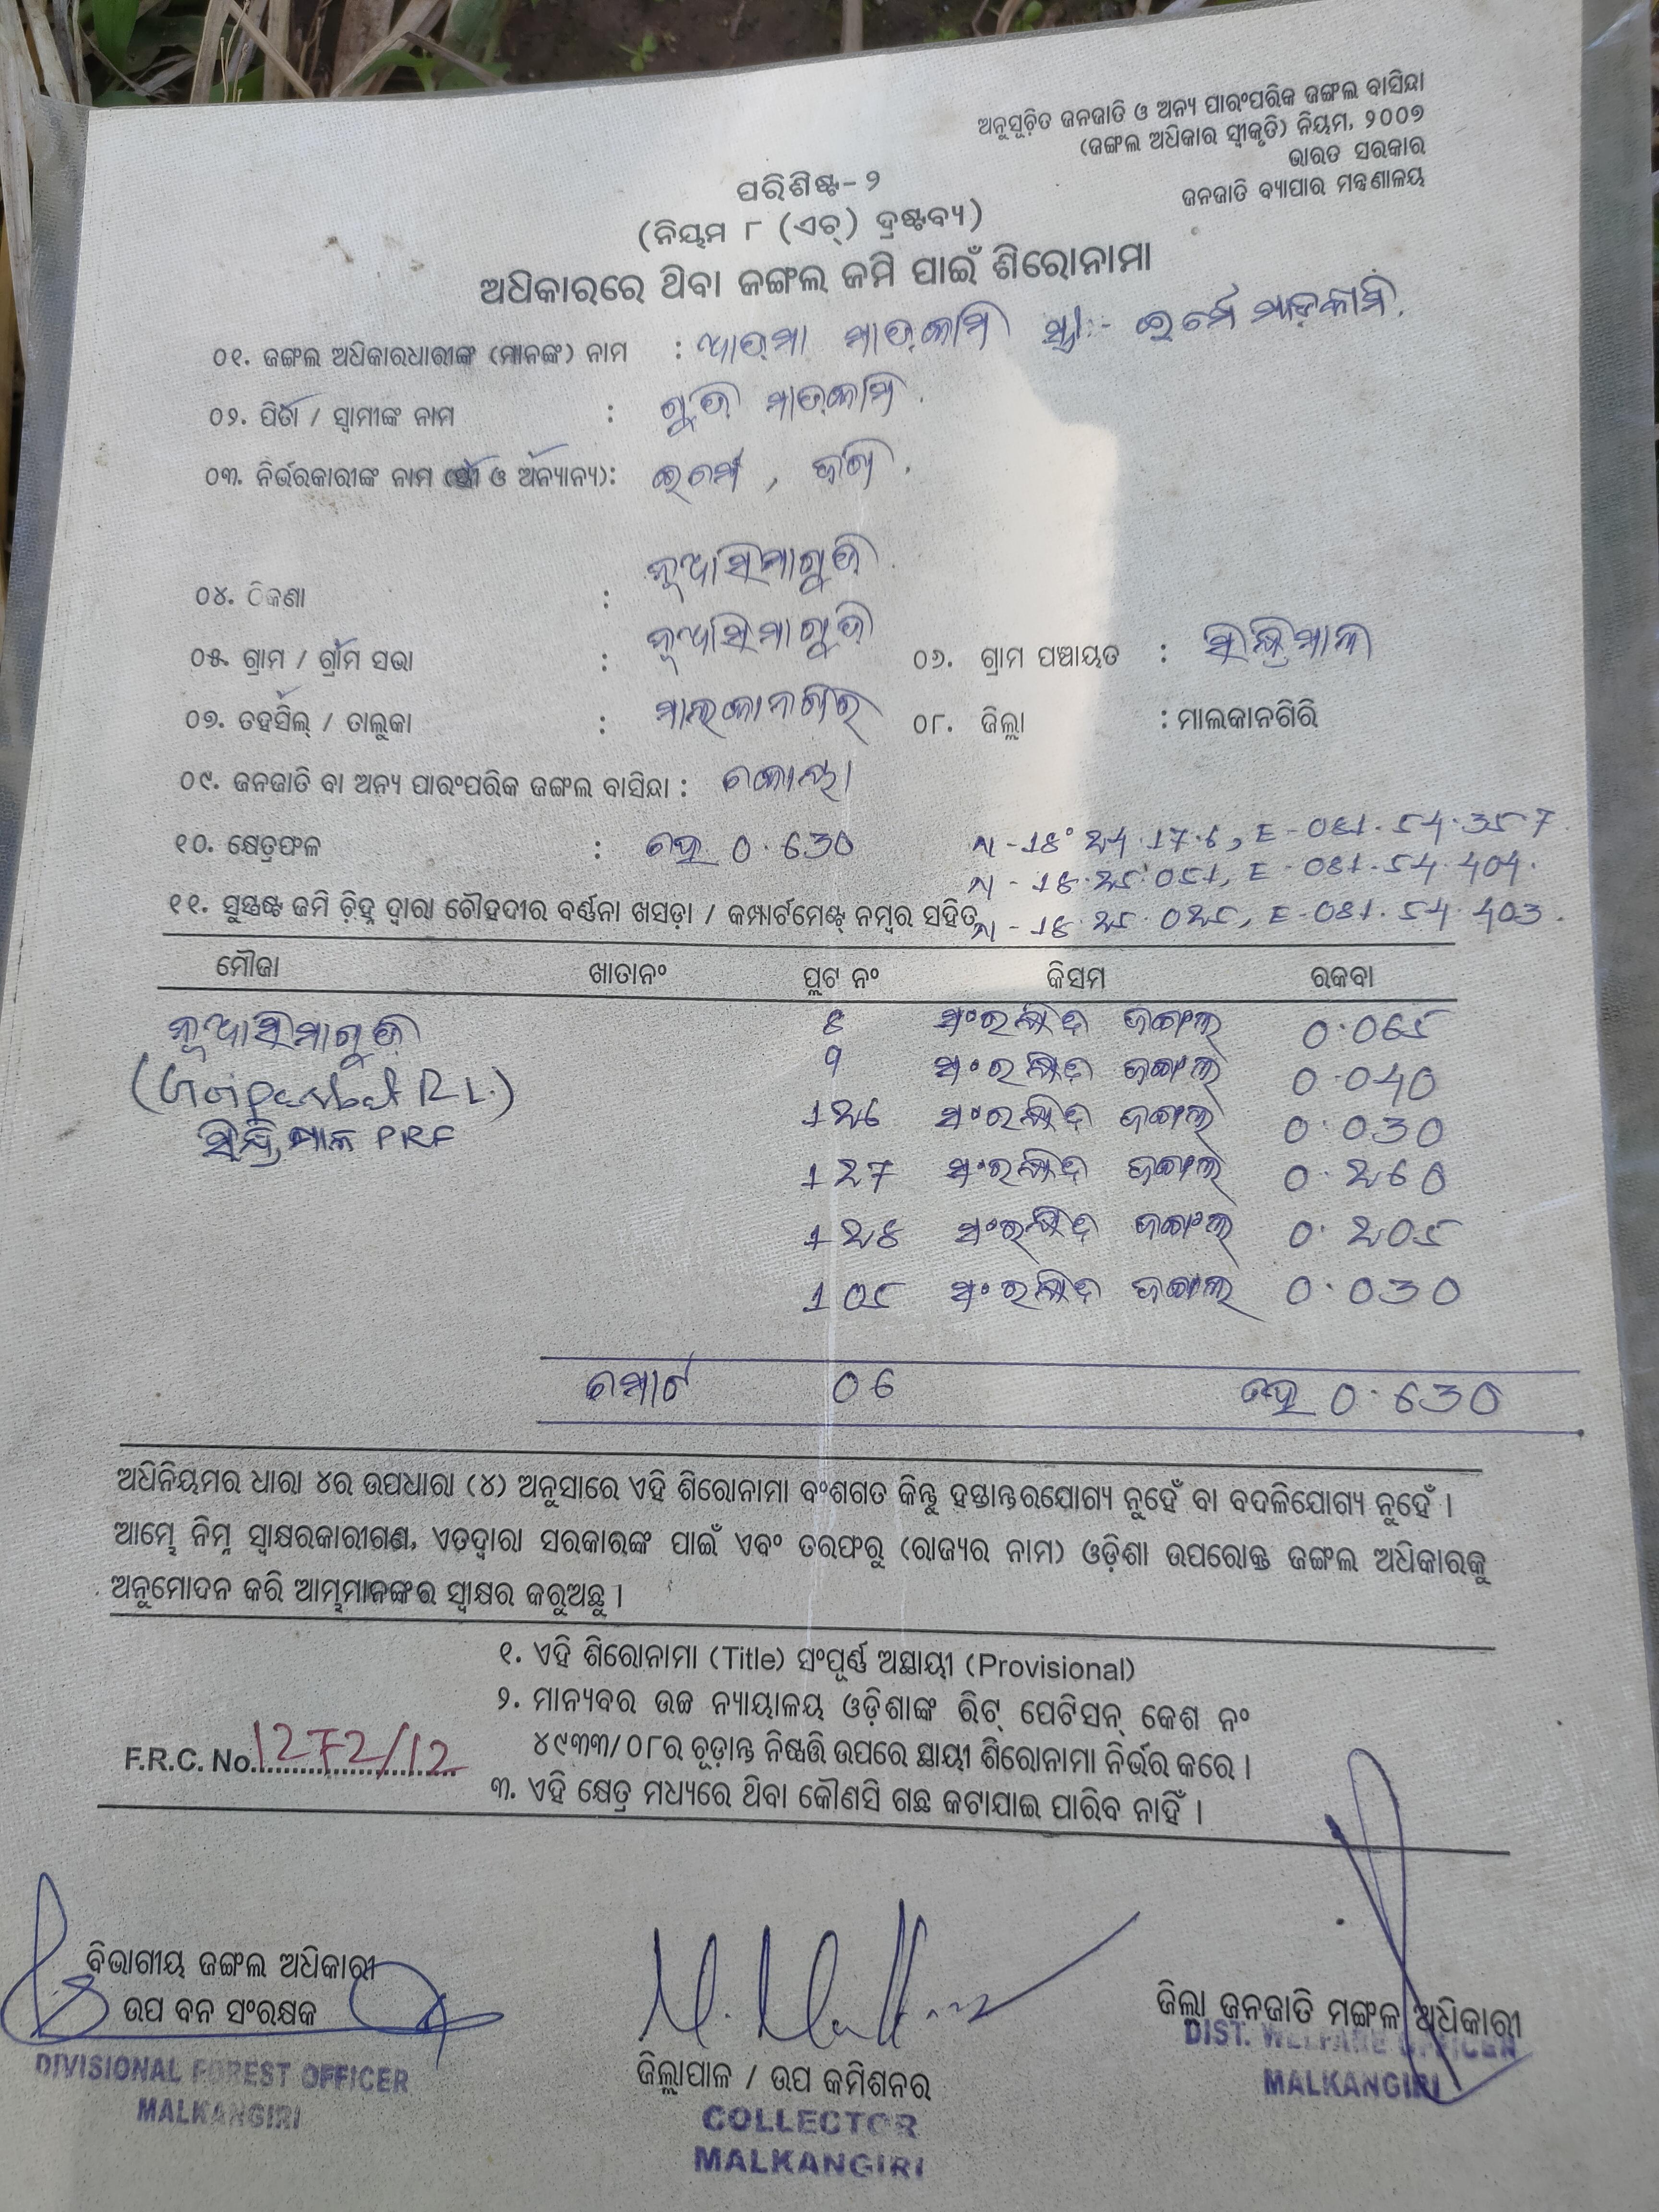 ଅନୁସୂଚିତ ଜନଜାତି ଓ ଅନ୍ୟ ପାରଂପରିକ ଜଙ୍ଗଲ ବାସିନ୍ଦା
(ଜଙ୍ଗଲ ଅଧିକାର ସ୍ୱୀକୃତି) ନିୟମ, ୨୦୦୭
ଭାରତ ସରକାର
ଜନଜାତି ବ୍ୟାପାର ମନ୍ତ୍ରଣାଳୟ
ପରିଶିଷ୍ଟ-୨
(ନିୟମ ୮ (ଏଚ୍) ଦ୍ରଷ୍ଟବ୍ୟ)
ଅଧିକାରରେ ଥିବା ଜଙ୍ଗଲ ଜମି ପାଇଁ ଶିରୋନାମା
୦୧. ଜଙ୍ଗଲ ଅଧିକାରଧାରୀଙ୍କ (ମାନଙ୍କ) ନାମ : ମାଡ଼କାମି ସ୍ତ୍ରୀ:- ମାଡ଼କାମି.
୦୨. ପିତା / ସ୍ୱାମୀଙ୍କ ନାମ : ଗୁଡ଼ି ମାଡ଼କାମି.
୦୩. ନିର୍ଭରକାରୀଙ୍କ ନାମ (ସ୍ତ୍ରୀ ଓ ଅନ୍ୟାନ୍ୟ):
୦୪. ଠିକଣା : ନୂଆସିମାଗୁଡ଼ି
୦୫. ଗ୍ରାମ / ଗ୍ରାମ ସଭା : ନୂଆସିମାଗୁଡ଼ି ୦୬. ଗ୍ରାମ ପଞ୍ଚାୟତ : ସିନ୍ଦ୍ରିମାଳ
୦୭. ତହସିଲ୍ / ତାଲୁକା : ମାଲକାନଗିରି ୦୮. ଜିଲ୍ଲା : ମାଲକାନଗିରି
୦୯. ଜନଜାତି ବା ଅନ୍ୟ ପାରଂପରିକ ଜଙ୍ଗଲ ବାସିନ୍ଦା : କୋୟା
୧୦. କ୍ଷେତ୍ରଫଳ : ହେ 0.630 N-18° 24.17.6, E-081.54.357
N-18.25.051, E-081.54.404.
୧୧. ସୁସ୍ପଷ୍ଟ ଜମି ଚିହ୍ନ ଦ୍ୱାରା ଚୌହଦୀର ବର୍ଣ୍ଣନା ଖସଡ଼ା / କମ୍ପାର୍ଟମେଣ୍ଟ୍ ନମ୍ବର ସହିତ N-18.25.025, E-081.54.403.
ମୌଜା ଖାତାନଂ ପ୍ଲଟ ନଂ କିସମ ରକବା
ନୂଆସିମାଗୁଡ଼ି 8 ସଂରକ୍ଷିତ ଜଙ୍ଗଲ 0.065
9 ସଂରକ୍ଷିତ ଜଙ୍ଗଲ 0.040
ସିନ୍ଦ୍ରିମାଳ PRF 126 ସଂରକ୍ଷିତ ଜଙ୍ଗଲ 0.030
127 ସଂରକ୍ଷିତ ଜଙ୍ଗଲ 0.260
128 ସଂରକ୍ଷିତ ଜଙ୍ଗଲ 0.205
105 ସଂରକ୍ଷିତ ଜଙ୍ଗଲ 0.030
ମୋଟ 06 ହେ 0.630
ଅଧିନିୟମର ଧାରା ୪ର ଉପଧାରା (୪) ଅନୁସାରେ ଏହି ଶିରୋନାମା ବଂଶଗତ କିନ୍ତୁ ହସ୍ତାନ୍ତରଯୋଗ୍ୟ ନୁହେଁ ବା ବଦଳିଯୋଗ୍ୟ ନୁହେଁ ।
ଆମ୍ଭେ ନିମ୍ନ ସ୍ୱାକ୍ଷରକାରୀଗଣ, ଏତଦ୍ୱାରା ସରକାରଙ୍କ ପାଇଁ ଏବଂ ତରଫରୁ (ରାଜ୍ୟର ନାମ) ଓଡ଼ିଶା ଉପରୋକ୍ତ ଜଙ୍ଗଲ ଅଧିକାରକୁ
ଅନୁମୋଦନ କରି ଆମ୍ଭମାନଙ୍କର ସ୍ୱାକ୍ଷର କରୁଅଛୁ ।
୧. ଏହି ଶିରୋନାମା (Title) ସଂପୂର୍ଣ୍ଣ ଅସ୍ଥାୟୀ (Provisional)
୨. ମାନ୍ୟବର ଉଚ୍ଚ ନ୍ୟାୟାଳୟ ଓଡ଼ିଶାଙ୍କ ରିଟ୍ ପେଟିସନ୍ କେଶ ନଂ
୪୯୩୩/୦୮ର ଚୂଡ଼ାନ୍ତ ନିଷ୍ପତ୍ତି ଉପରେ ସ୍ଥାୟୀ ଶିରୋନାମା ନିର୍ଭର କରେ ।
F.R.C. No. 1272/12
୩. ଏହି କ୍ଷେତ୍ର ମଧ୍ୟରେ ଥିବା କୌଣସି ଗଛ କଟାଯାଇ ପାରିବ ନାହିଁ ।
ବିଭାଗୀୟ ଜଙ୍ଗଲ ଅଧିକାରୀ
ଉପ ବନ ସଂରକ୍ଷକ
DIVISIONAL FOREST OFFICER
MALKANGIRI
ଜିଲ୍ଲାପାଳ / ଉପ କମିଶନର
COLLECTOR
MALKANGIRI
ଜିଲ୍ଲା ଜନଜାତି ମଙ୍ଗଳ ଅଧିକାରୀ
DIST. WELFARE OFFICER
MALKANGIRI